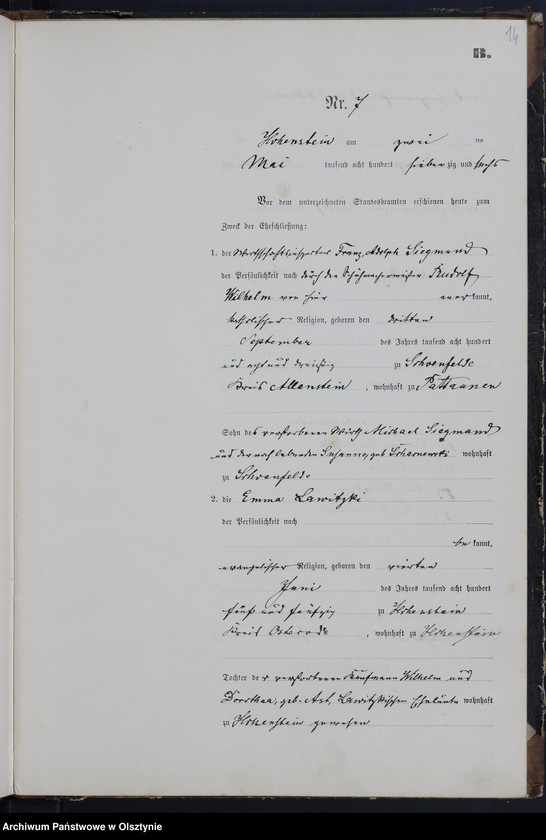 14
B.
Nr. 7
Hohenstein am zwei ten
Mai tausend acht hundert sieben zig und sechs
Vor dem unterzeichneten Standesbeamten erschienen heute zum
Zweck der Eheschließung:
1. der Wirthschaftsinspector Franz, Adolph Siegmund
der Persönlichkeit nach durch den Schuhmachermeister Rudolf
Wilhelm von hier anerkannt,
katholischer Religion, geboren den dritten
September des Jahres tausend acht hundert
und acht und dreißig zu Schoenfelde
Kreis Allenstein, wohnhaft zu Pattaunen
Sohn des verstorbenen Wirth Michael Siegmund
und der noch lebenden Susanna, geb. wohnhaft
zu Schoenfelde
2. die Emma Lawitzki
der Persönlichkeit nach
be kannt,
evangelischer Religion, geboren den vierten
Juni des Jahres tausend acht hundert
fünf und fünfzig zu Hohenstein
Kreis Osterode, wohnhaft zu Hohenstein
Tochter der verstorbenen Kaufmann Wilhelm und
Dorothea, geb. Ast, Lawitzkischen Eheleute wohnhaft
zu Hohenstein gewesen
Archiwum Państwowe w Olsztynie